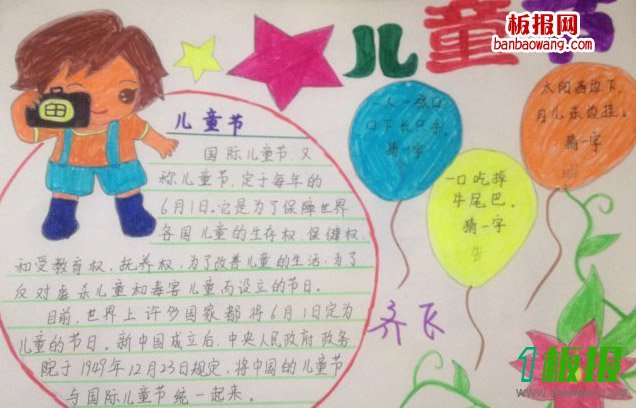 板报网
banbaowang.com
儿童节
儿童节
国际儿童节又
称儿童节,定于每年的
6月1日.它是为了保障世界
各国儿童的生存权、保健权
和受教育权、抚养权、为了改善儿童的生活,为了
反对虐杀儿童和毒害儿童而设立的节日。
目前,世界上许多国家都将6月1日定为
儿童的节日。新中国成立后,中央人民政府政务
院于1949年12月23日规定,将中国的儿童节
与国际儿童节统一起来。
一人一张口
口下长只手
猜一字
一口吃掉
牛尾巴。
猜一字
告
太阳西边下,
月儿东边挂。
猜一字
明
齐飞
1板报